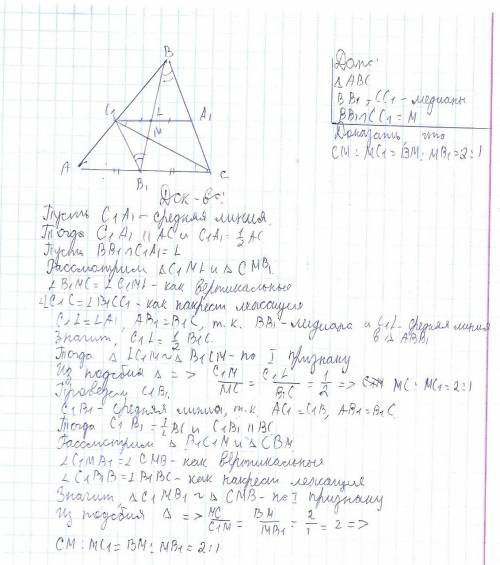 B
C1 L A1
M
A B1 C
Дано:
△ ABC
BB1, CC1 - медианы
BB1 ∩ CC1 = M
Доказать что
CM : MC1 = BM : MB1 = 2:1
Док-во:
Пусть C1A1 - средняя линия.
Тогда C1A1 || AC и C1A1 = 1/2 AC
Пусть BB1 ∩ C1A1 = L
Рассмотрим △ C1ML и △ CMB1
∠B1MC = ∠C1ML - как вертикальные
∠LC1C = ∠B1CC1 - как накрест лежащие
C1L = LA1, AB1 = B1C, т.к. BB1 - медиана и C1L - средняя линия
в △ ABB1
Значит, C1L = 1/2 B1C
Тогда △ LC1M ~ △ B1CM - по I признаку
Из подобия △ => C1M/MC = C1L/B1C = 1/2 => MC : MC1 = 2:1
Проведем C1B1.
C1B1 - средняя линия, т.к. AC1 = C1B, AB1 = B1C.
Тогда C1B1 = 1/2 BC и C1B1 || BC
Рассмотрим △ B1C1M и △ CBM
∠C1MB1 = ∠CMB - как вертикальные
∠C1B1B = ∠B1BC - как накрест лежащие
Значит, △ C1MB1 ~ △ CMB - по I признаку
Из подобия △ => MC/C1M = BM/MB1 = 2/1 = 2 =>
CM : MC1 = BM : MB1 = 2:1